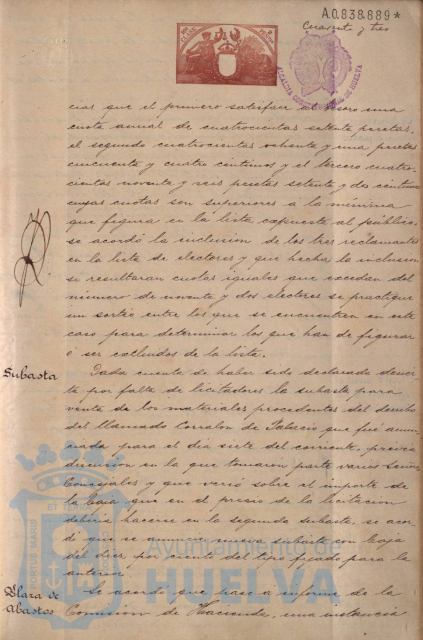 A.0.838.889*
Cuarenta y tres
ALCALDIA CONSTITUCIONAL DE HUELVA
cias que el primero satisface al Tesoro una
cuota anual de cuatrocientas setenta pesetas,
el segundo cuatrocientas ochenta y una pesetas
cincuenta y cuatro centimos y el tercero cuatro-
cientas noventa y seis pesetas setenta y dos centimos
cuyas cuotas son superiores á la minima
que figura en la lista expuesta al público,
se acordó la inclusion de los tres reclamantes
en la lista de electores y que hecha la inclusion
si resultaran cuotas iguales que excedan del
número de noventa y dos electores se practique
un sorteo entre los que se encuentren en este
caso para determinar los que han de figurar
ó ser excluidos de la lista.
Subasta
Dada cuenta de haber sido declarada desier-
ta por falta de licitadores la subasta para
venta de los materiales procedentes del derribo
del llamado Corralon de Palacio que fué anun-
ciada para el dia siete del corriente, prévia
discusion en la que tomaron parte varios Señores
Concejales y que versó sobre el importe de
la baja que en el precio de la licitacion
debiera hacerse en la segunda subasta, se acor-
dó que se anuncie nueva subasta con baja
del diez por ciento del tipo fijado para la
anterior.
Plaza de
Abastos
Se acordó que pase á informe de la
Comision de Hacienda, una instancia
PORTUS MARIS ET TERRAE
Ayuntamiento de
HUELVA